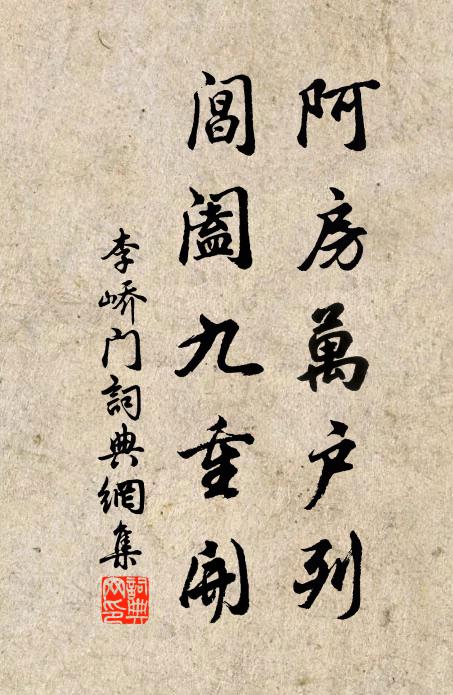 阿房萬户列
閶闔九重開
李嶠门詞典網集
詞典网印